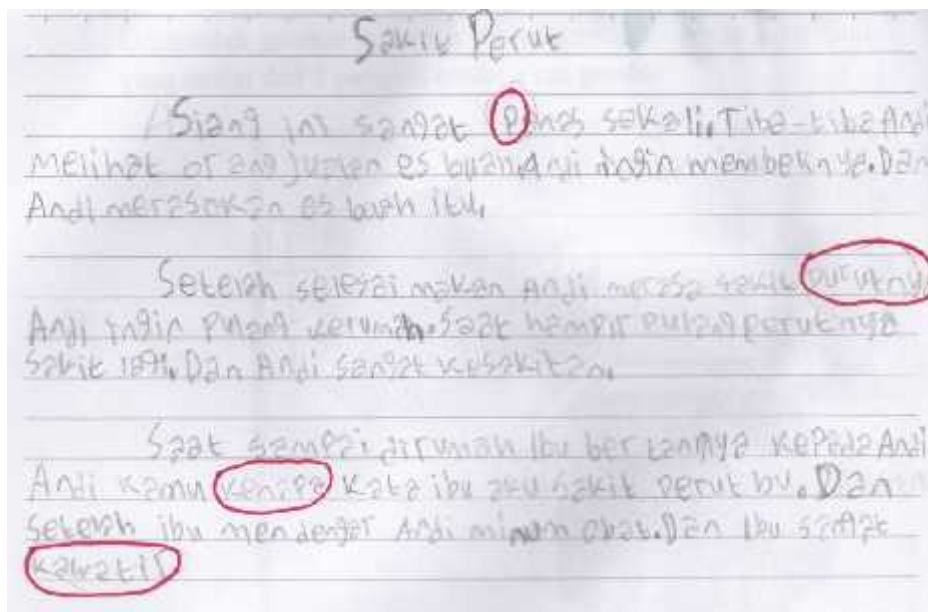 Sakit Perut
Siang ini sangat Panas sekali. Tiba-tiba Andi
melihat orang jualan es buah. Andi ingin membelinya. Dan
Andi merasakan es buah itu.
Setelah selesai makan Andi merasa sakit purutnya
Andi ingin Pulang kerumah. Saat hampir pulang perutnya
Sakit lagi. Dan Andi sangat kesakitan.
Saat sampai dirumah Ibu bertannya kepada Andi
Andi kamu kenapa kata ibu aku sakit perut bu. Dan
setelah ibu mendengar Andi minum obat. Dan Ibu sangat
kawatir